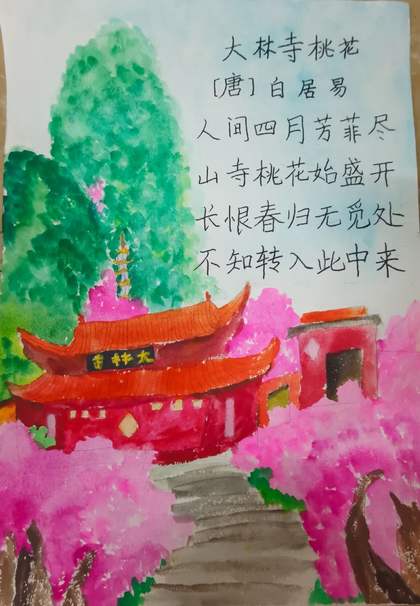 大林寺桃花
〔唐〕白居易
人间四月芳菲尽
山寺桃花始盛开
长恨春归无觅处
不知转入此中来
大林寺